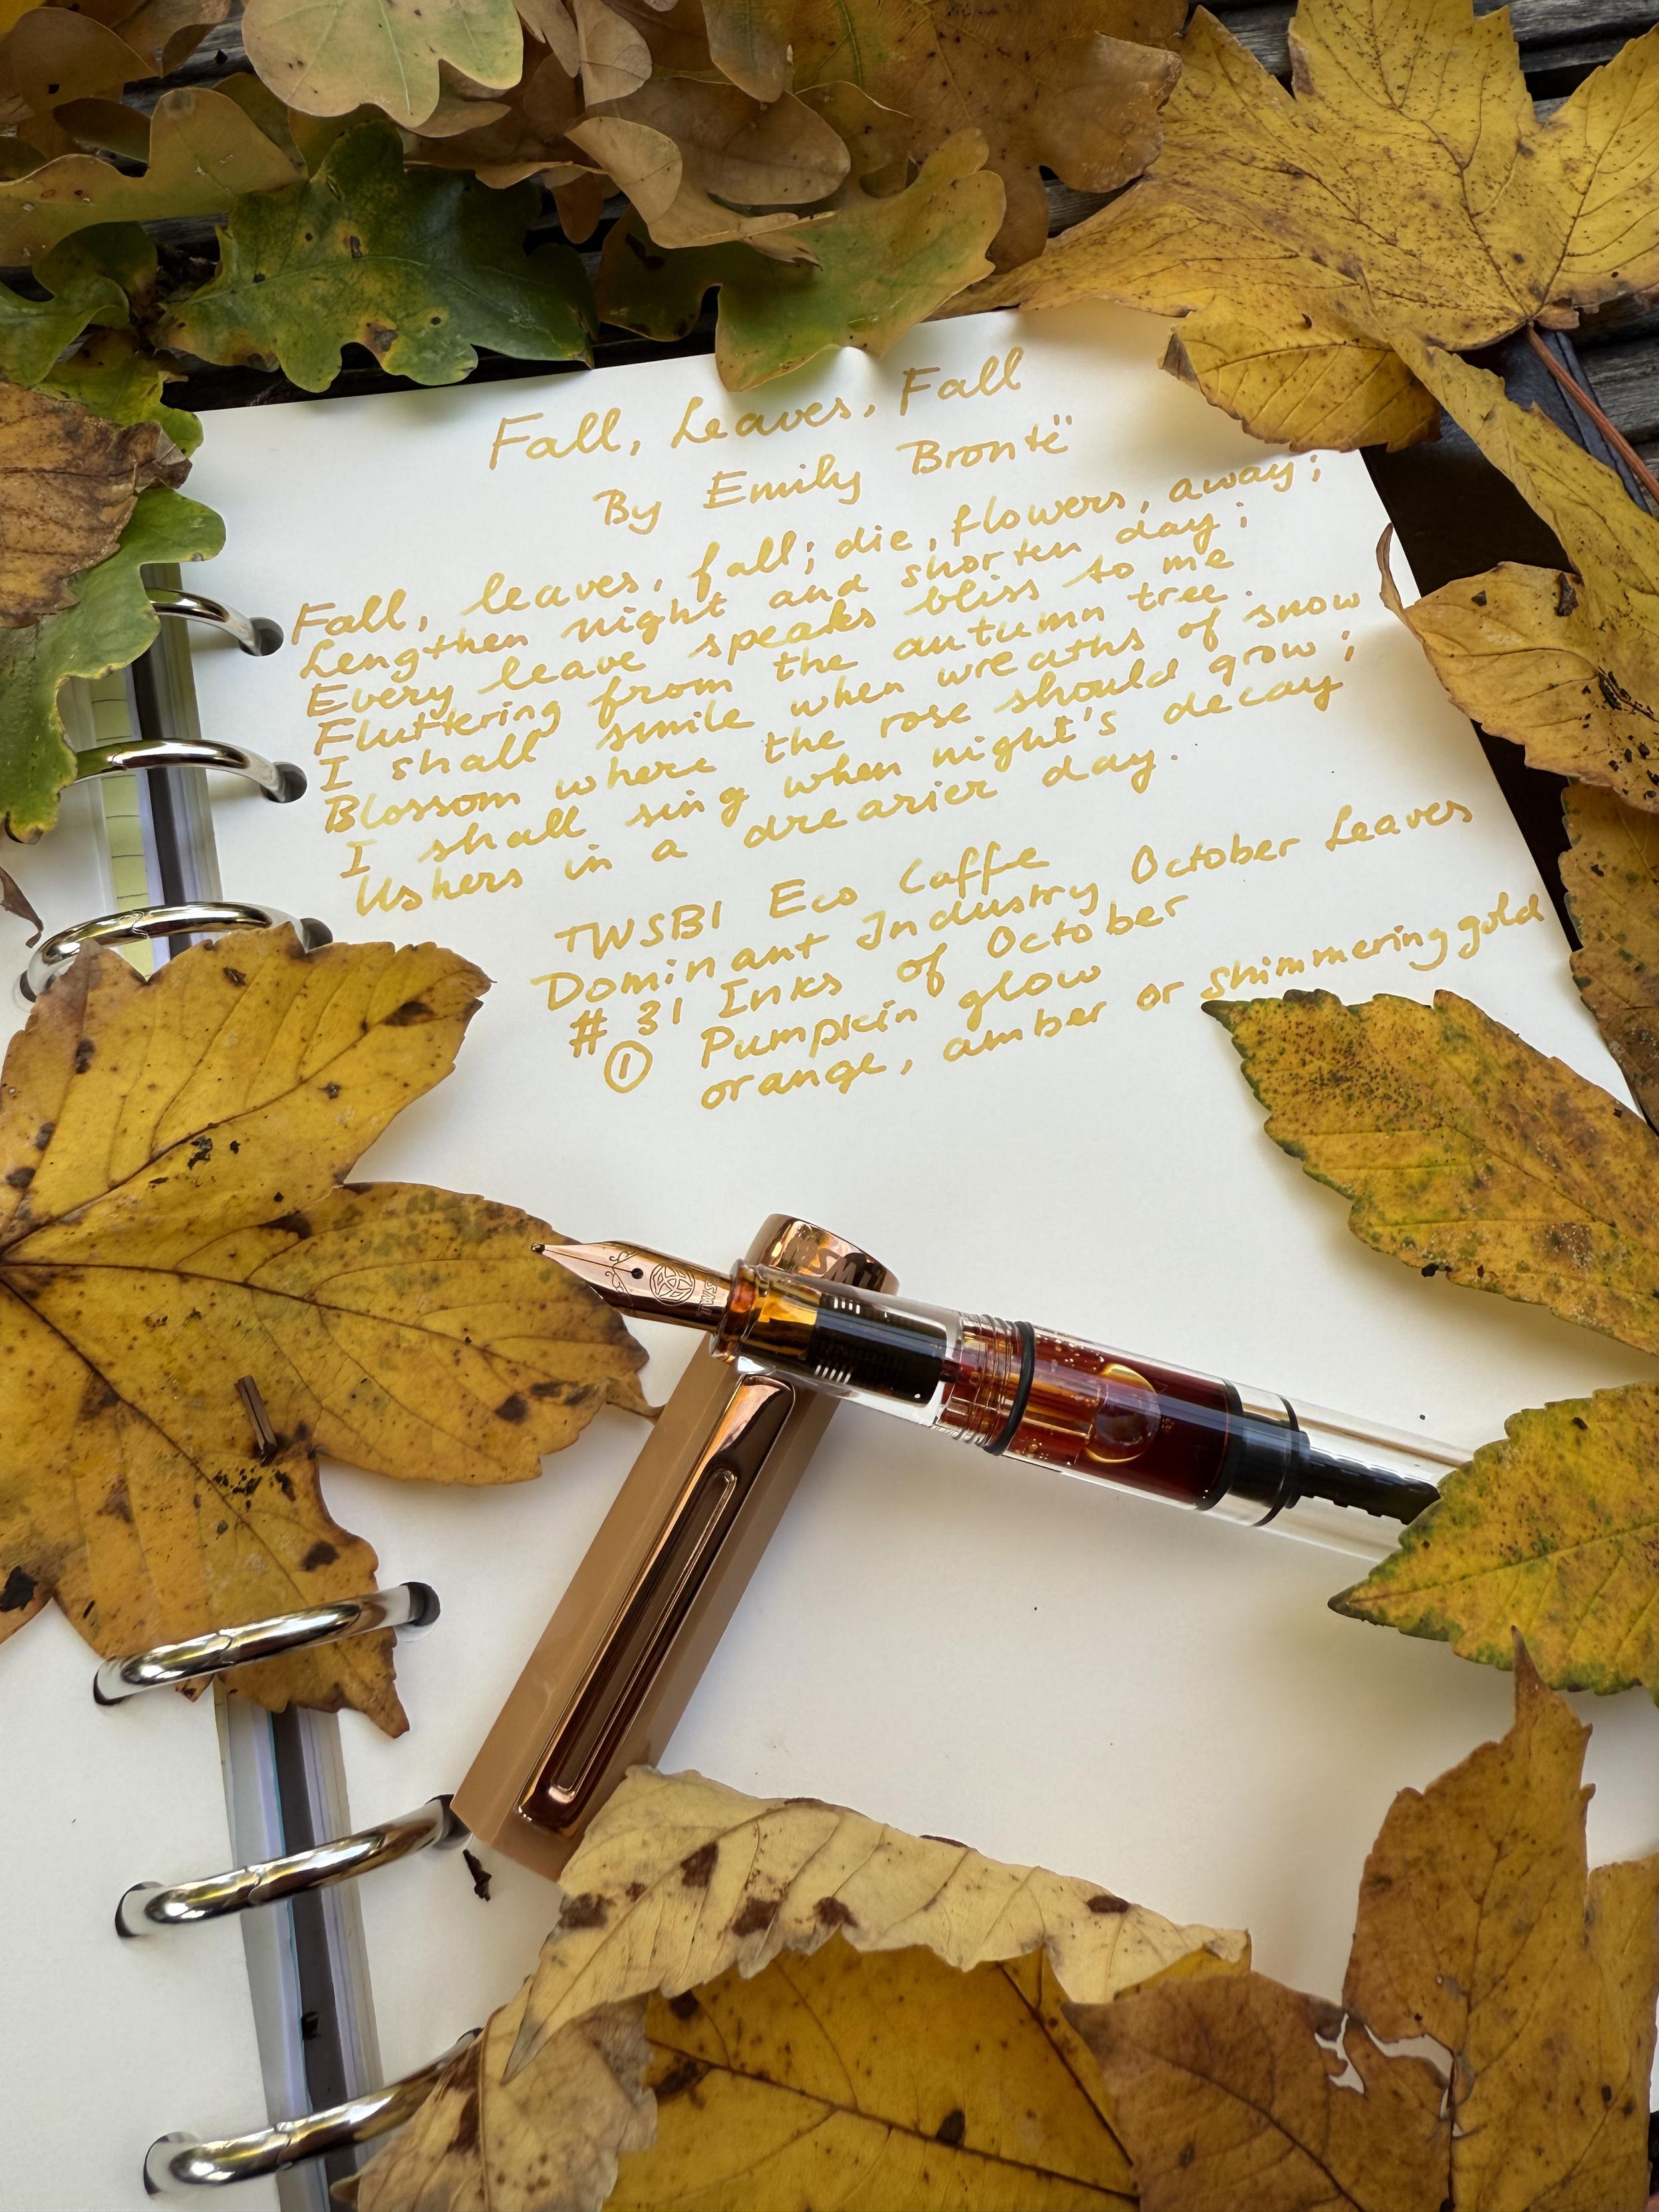 Fall, Leaves, Fall
By Emily Brontë
Fall, leaves, fall; die, flowers, away;
Lengthen night and shorten day;
Every leave speaks bliss to me
Fluttering from the autumn tree.
I shall smile when wreaths of snow
Blossom where the rose should grow;
I shall sing when night's decay
Ushers in a drearier day.
TWSBI Eco Caffe
Dominant Industry October Leaves
# 31 Inks of October
① Pumpkin glow
orange, amber or shimmering gold
TWS